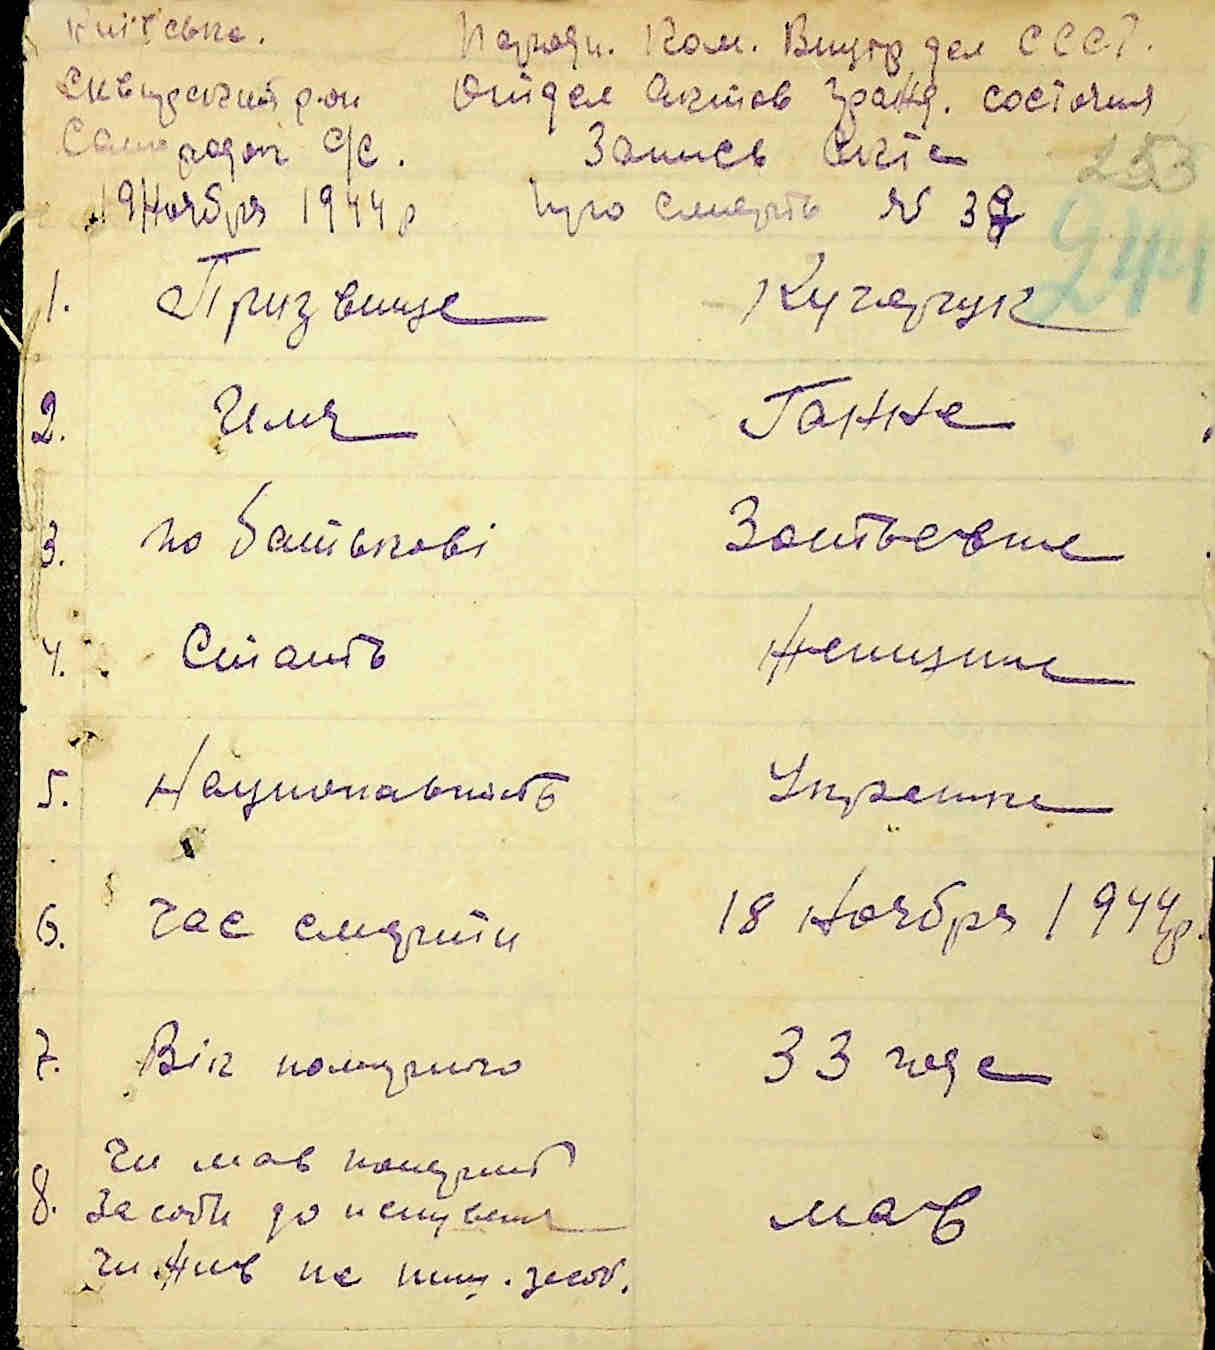 Київська.
Народн. Ком. Внутр дел СССР.
Сквирский р-он
Отдел Актов Гражд. состояния
с/с.
Запись Акта
253
19 Ноября 1944 р
про смерть № 39
244
1. Призвище Кучерчук
2. Имя Ганна
3. по батькові
4. Стать Женщина
5. Национальность Украинка
6. Час смерти 18 Ноября 1944 р.
7. Вік помершого 33 года
8. Чи мав померший
засоби до існування
чи жив на инш. засоб.
мав